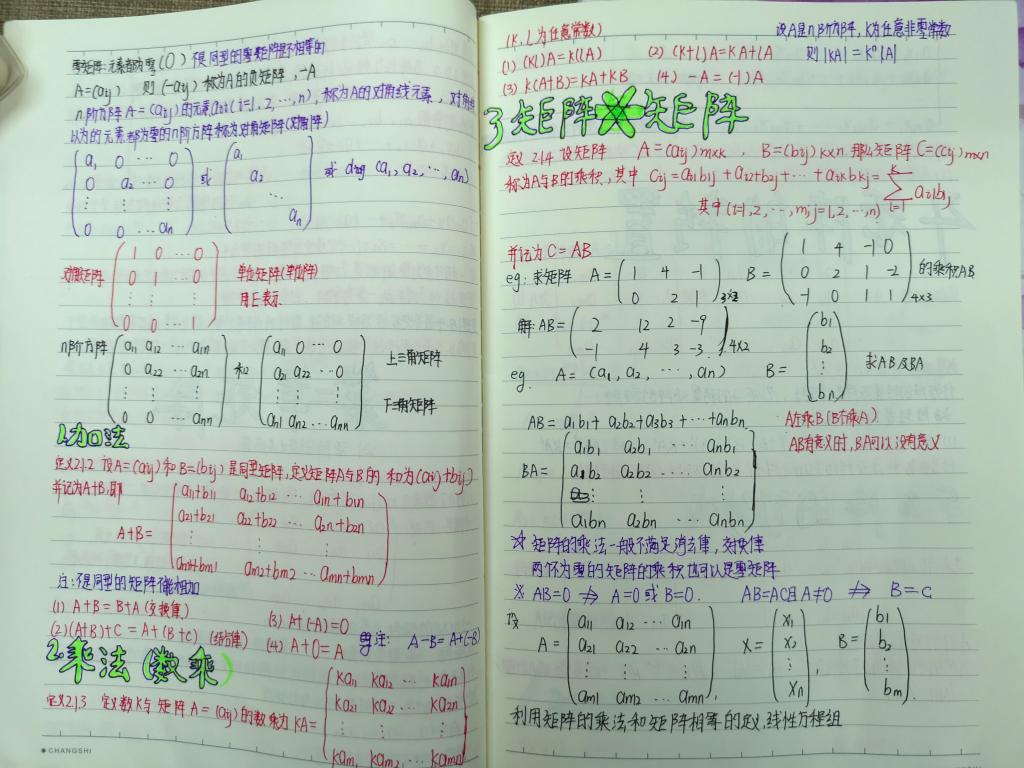 零矩阵:元素都为零(O) 不是同型的零矩阵是不相等的
A=(aij) 则(-aij)称为A的负矩阵,-A
n阶方阵A=(aij)的元素aii(i=1,2,…,n),称为A的对角线元素,对角线
以为的元素都为零的n阶方阵称为对角矩阵(对角阵)
( a1 0 … 0
0 a2 … 0
⋮ ⋮ ⋮
0 0 … an ) 或 ( a1
a2
⋱
an ) 或 diag (a1, a2, …, an)
( 1 0 … 0
0 1 … 0
⋮ ⋮ ⋮
0 0 … 1 ) 单位矩阵(单位阵)
用E表示.
n阶方阵 ( a11 a12 … a1n
0 a22 … a2n
⋮ ⋮ ⋮
0 0 … ann ) 和 ( a11 0 … 0
a21 a22 … 0
⋮ ⋮ ⋮
an1 an2 … ann ) 上三角矩阵
下三角矩阵
1.加法
定义2.1.2 设A=(aij)和B=(bij)是同型矩阵,定义矩阵A与B的和为(aij+bij)
并记为A+B,即
A+B= ( a11+b11 a12+b12 … a1n+b1n
a21+b21 a22+b22 … a2n+b2n
⋮ ⋮ ⋮
am1+bm1 am2+bm2 … amn+bmn )
注:不是同型的矩阵不能相加
(1) A+B=B+A(交换律) (3) A+(-A)=0
(2)(A+B)+C=A+(B+C) (结合律) (4) A+O=A 注: A-B=A+(-B)
2.乘法(数乘)
定义2.1.3 定义数K与矩阵A=(aij)的数乘为KA= ( ka11 ka12 … ka1n
ka21 ka22 … ka2n
⋮ ⋮ ⋮
kam1 kam2 … kamn )
CHANGSHI
(K,L为任意常数) 设A是n阶方阵,K为任意非零常数
(1) (KL)A=K(LA) (2) (K+L)A=KA+LA 则|KA|=Kⁿ|A|
(3) K(A+B)=KA+KB (4) -A=(-1)A
3矩阵*矩阵
定义2.1.4 设矩阵 A=(aij)m×k, B=(bij)k×n 那么矩阵C=(cij)m×n
称为A与B的乘积,其中 Cij=ai1b1j+ai2+b2j+…+aikbkj=∑ailblj
其中(i=1,2,…,m;j=1,2,…,n)
并记为C=AB
eg:求矩阵 A= ( 1 4 -1
0 2 1 ) B= ( 1 4 -1 0
0 2 1 -2
-1 0 1 1 )4×3 的乘积AB
解:AB= ( 2 12 2 -9
-1 4 3 -3 )4×2
eg. A=(a1, a2, …, an) B= ( b1
b2
⋮
bn ) 求AB及BA
AB=a1b1+a2b2+a3b3+…+anbn. A左乘B(B右乘A)
AB有意义时,BA可以没有意义
BA= ( a1b1 a2b1 … anb1
a1b2 a2b2 … anb2
⋮ ⋮ ⋮
a1bn a2bn … anbn )
☆ 矩阵的乘法一般不满足消去律,交换律
两个不为零的矩阵的乘积也可以是零矩阵
※ AB=0 ⇏ A=0或B=0. AB=AC且A≠0 ⇏ B=C
A= ( a11 a12 … a1n
a21 a22 … a2n
⋮ ⋮ ⋮
am1 am2 … amn ), X= ( x1
x2
⋮
xn ), B= ( b1
b2
⋮
bm ).
利用矩阵的乘法和矩阵相等的定,线性方程组